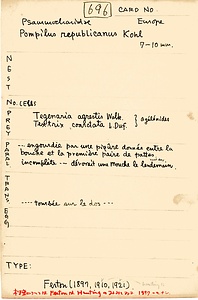 696 CARD NO.
Psammocharidae Europe
Pompilus republicanus Kohl
7-10 mm.
NEST
No. CELLS
PREY
Tegenaria agrestis Walk.
Textrix caudata L. Duf. } agélénides
PARAL
--- engourdie par une piqûre donnée entre la
bouche et la première paire de pattes
incomplète -- dévorait une mouche le lendemain.
TRANS
---- tombée sur le dos ----
EGG
TYPE:
Ferton (1897, 1910, 1921)